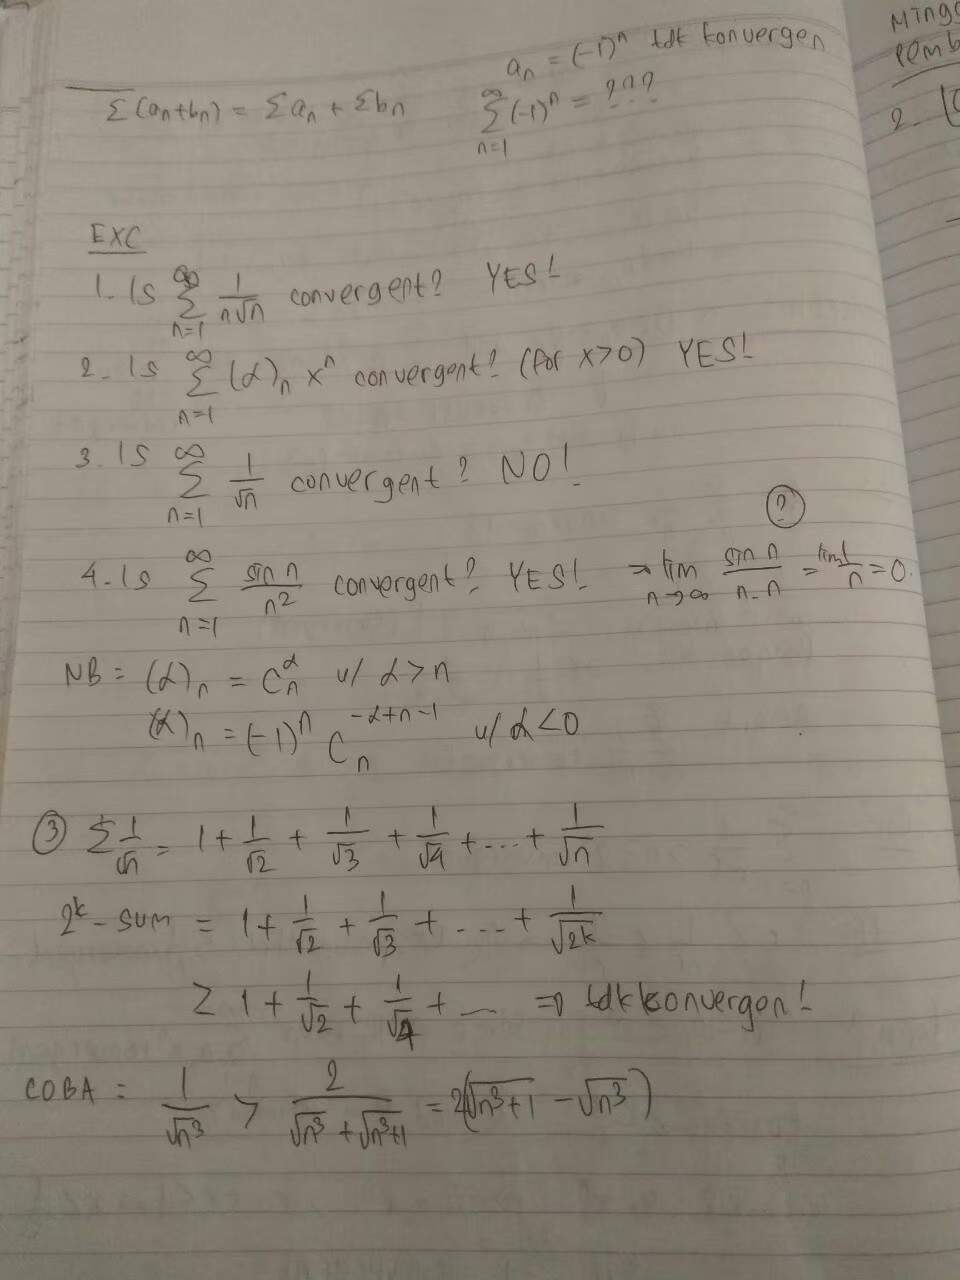 Ming
Pemb
2.
aₙ = (-1)ⁿ tdt konvergen
Σ(aₙ+bₙ) = Σaₙ + Σbₙ
∞ Σ n=1 (-1)ⁿ = ???
EXC
1. Is ∞ Σ n=1 1/(n√n) convergent? YES!
2. Is ∞ Σ n=1 (α)ₙ xⁿ convergent? (for x>0) YES!
3. Is ∞ Σ n=1 1/√n convergent? NO!
?
4. Is ∞ Σ n=1 sin n/n² convergent? YES! → lim n→∞ sin n/n·n = lim 1/n = 0.
NB = (α)ₙ = Cₙ^α u/ α>n
(α)ₙ = (-1)ⁿ Cₙ^(-α+n-1) u/ α<0
③ Σ 1/√n = 1 + 1/√2 + 1/√3 + 1/√4 + ... + 1/√n
2ᵏ-sum = 1 + 1/√2 + 1/√3 + ... + 1/√2k
≥ 1 + 1/√2 + 1/√4 + ... ⇒ tdk konvergen!
COBA = 1/√n³ > 2/(√n³ + √n³+1) = 2(√n³+1 - √n³)